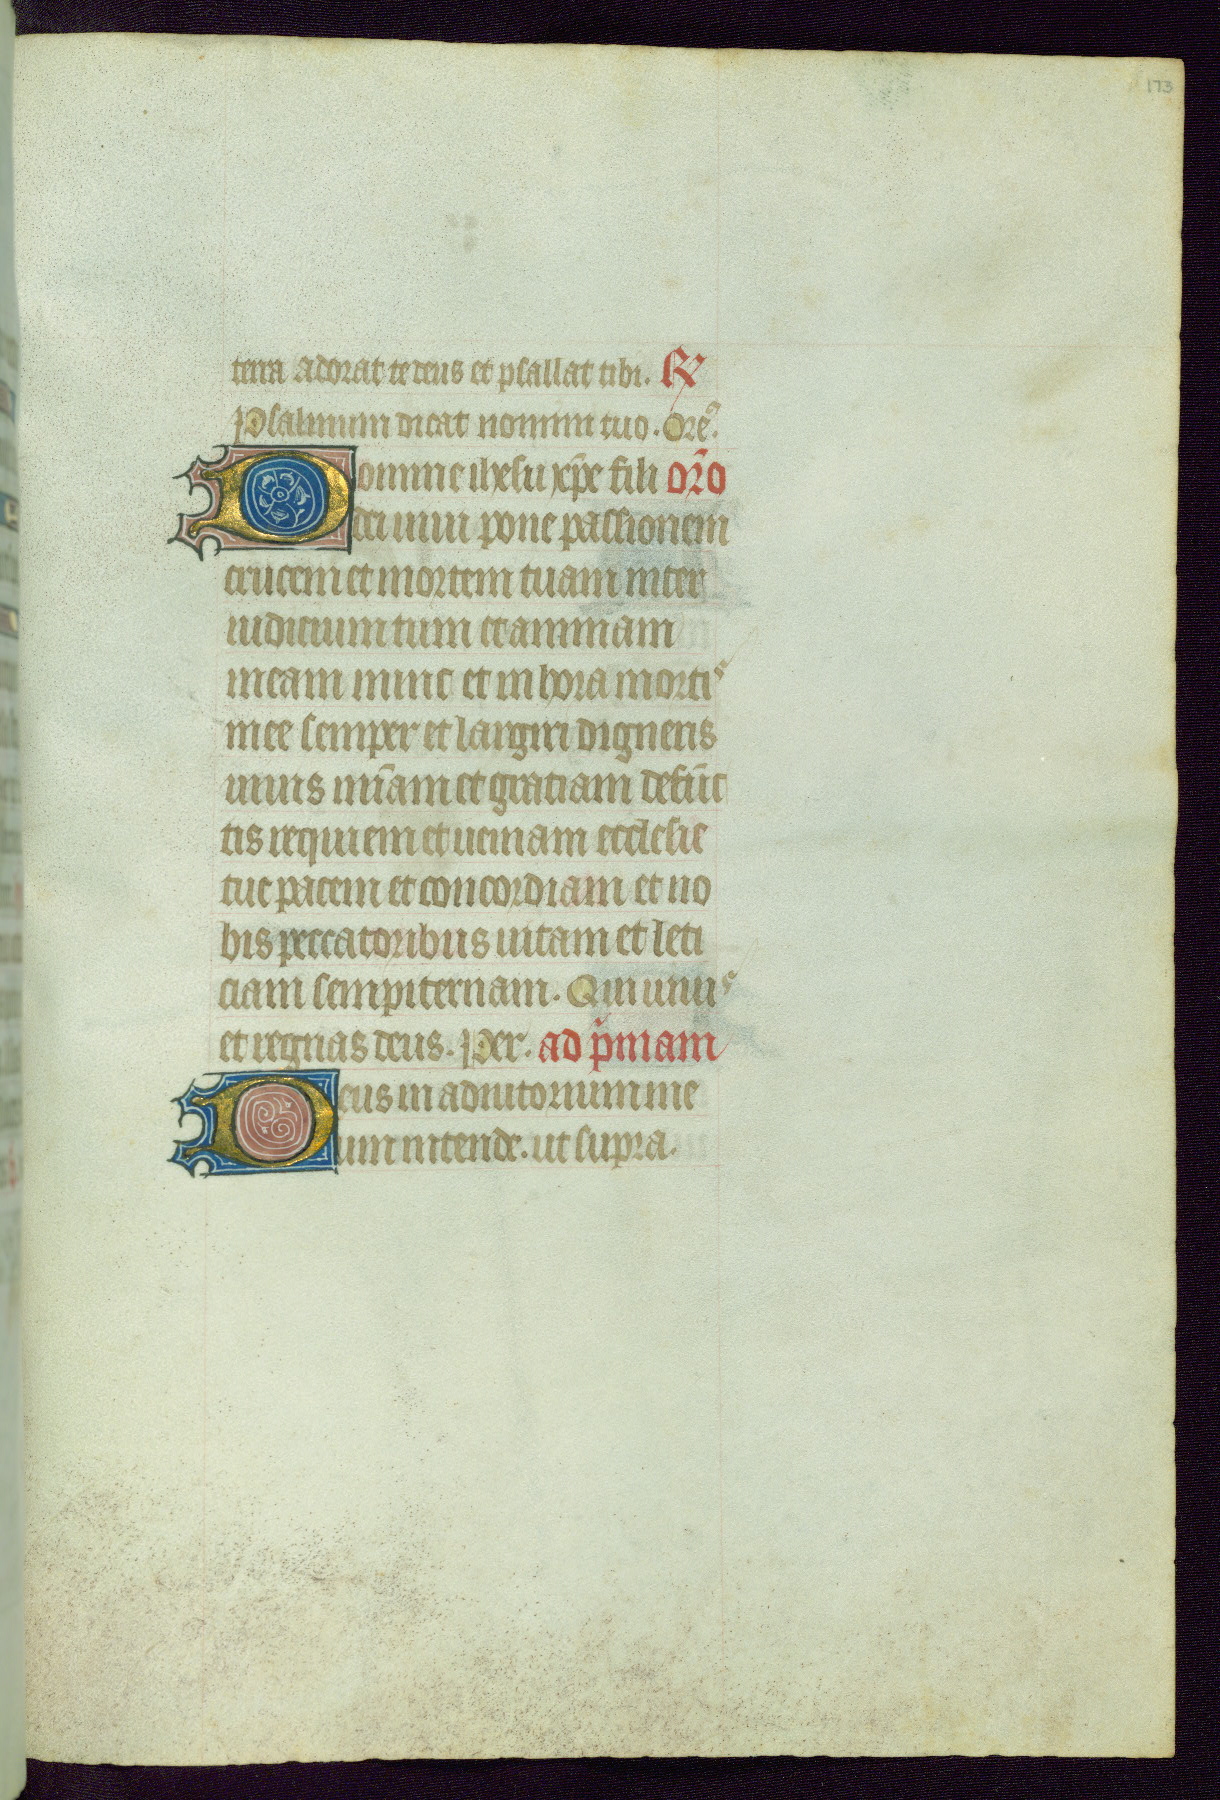 173
terra adorat te deus et psallat tibi. R
Psalmum dicat nomini tuo. Ore᷑.
Domine ihesu xp̄e fili or̄o
dei uiui pone passionem
crucem et mortem tuam inter
iudicium tuum et animam
meam nunc et in hora mortis
mee semper et largiri digneris
uiuis mīam et gratiam defūc
tis requiem et ueniam ecclesie
tue pacem et concordiam et no
bis peccatoribus uitam et leti
ciam sempiternam. Qui uiuis
et regnas deus. Per. ad p̄mam
Deus in adiutorium me
um intende. ut supra.